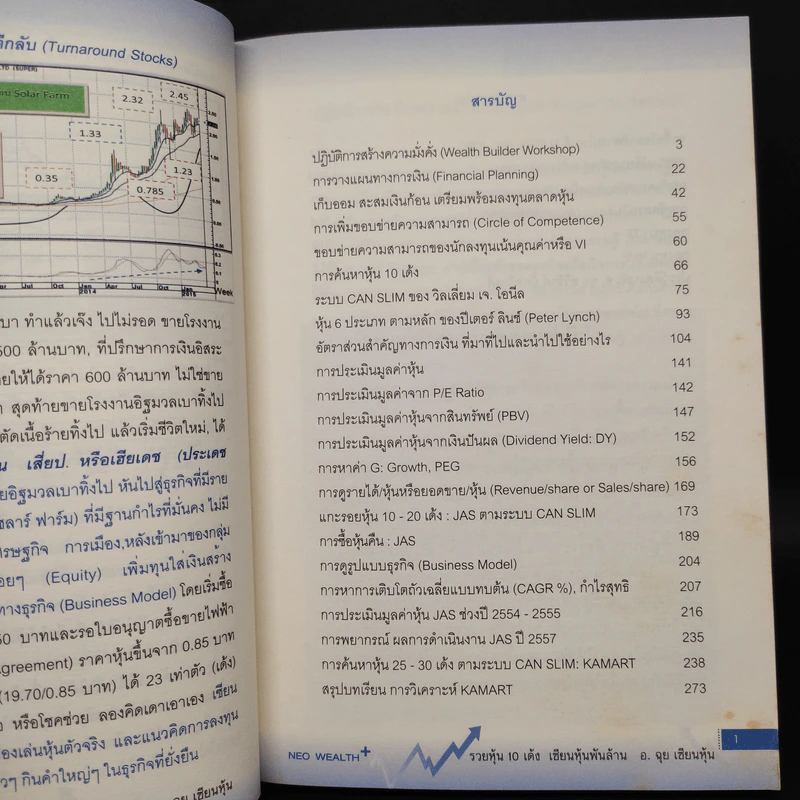 ตีกลับ (Turnaround Stocks)
LTD (SUPER)
Solar Farm
2.32
2.45
1.33
0.35
0.785
1.23
Jul Oct 2014 Apr Jul Oct 2015 Week
เบา ทำแล้วเจ๊ง ไปไม่รอด ขายโรงงาน
500 ล้านบาท, ที่ปรึกษาการเงินอิสระ
ยให้ได้ราคา 600 ล้านบาท ไม่ใช่ขาย
สุดท้ายขายโรงงานอิฐมวลเบาทิ้งไป
ตัดเนื้อร้ายทิ้งไป แล้วเริ่มชีวิตใหม่, ได้
น เสี่ยป. หรือเฮียเดช (ประเดช
ยอิฐมวลเบาทิ้งไป หันไปสู่ธุรกิจที่มีราย
ซลาร์ ฟาร์ม) ที่มีฐานกำไรที่มั่นคง ไม่มี
ศรษฐกิจ การเมือง,หลังเข้ามาของกลุ่ม
อยๆ (Equity) เพิ่มทุนใส่เงินสร้าง
ทางธุรกิจ (Business Model) โดยเริ่มซื้อ
50 บาทและรอใบอนุญาตซื้อขายไฟฟ้า
Agreement) ราคาหุ้นขึ้นจาก 0.85 บาท
(19.70/0.85 บาท) ได้ 23 เท่าตัว (เด้ง)
หรือโชคช่วย ลองคิดเดาเอาเอง เซียน
องเล่นหุ้นตัวจริง และแนวคิดการลงทุน
วๆ กินคำใหญ่ๆ ในธุรกิจที่ยั่งยืน
ฉุย เซียนหุ้น
สารบัญ
ปฏิบัติการสร้างความมั่งคั่ง (Wealth Builder Workshop) 3
การวางแผนทางการเงิน (Financial Planning) 22
เก็บออม สะสมเงินก้อน เตรียมพร้อมลงทุนตลาดหุ้น 42
การเพิ่มขอบข่ายความสามารถ (Circle of Competence) 55
ขอบข่ายความสามารถของนักลงทุนเน้นคุณค่าหรือ VI 60
การค้นหาหุ้น 10 เด้ง 66
ระบบ CAN SLIM ของ วิลเลี่ยม เจ. โอนีล 75
หุ้น 6 ประเภท ตามหลัก ของปีเตอร์ ลินช์ (Peter Lynch) 93
อัตราส่วนสำคัญทางการเงิน ที่มาที่ไปและนำไปใช้อย่างไร 104
การประเมินมูลค่าหุ้น 141
การประเมินมูลค่าจาก P/E Ratio 142
การประเมินมูลค่าหุ้นจากสินทรัพย์ (PBV) 147
การประเมินมูลค่าหุ้นจากเงินปันผล (Dividend Yield: DY) 152
การหาค่า G: Growth, PEG 156
การดูรายได้/หุ้นหรือยอดขาย/หุ้น (Revenue/share or Sales/share) 169
แกะรอยหุ้น 10 - 20 เด้ง : JAS ตามระบบ CAN SLIM 173
การซื้อหุ้นคืน : JAS 189
การดูรูปแบบธุรกิจ (Business Model) 204
การหาการเติบโตถัวเฉลี่ยแบบทบต้น (CAGR %), กำไรสุทธิ 207
การประเมินมูลค่าหุ้น JAS ช่วงปี 2554 - 2555 216
การพยากรณ์ ผลการดำเนินงาน JAS ปี 2557 235
การค้นหาหุ้น 25 - 30 เด้ง ตามระบบ CAN SLIM: KAMART 238
สรุปบทเรียน การวิเคราะห์ KAMART 273
1
NEO WEALTH+ รวยหุ้น 10 เด้ง เซียนหุ้นพันล้าน อ. ฉุย เซียนหุ้น